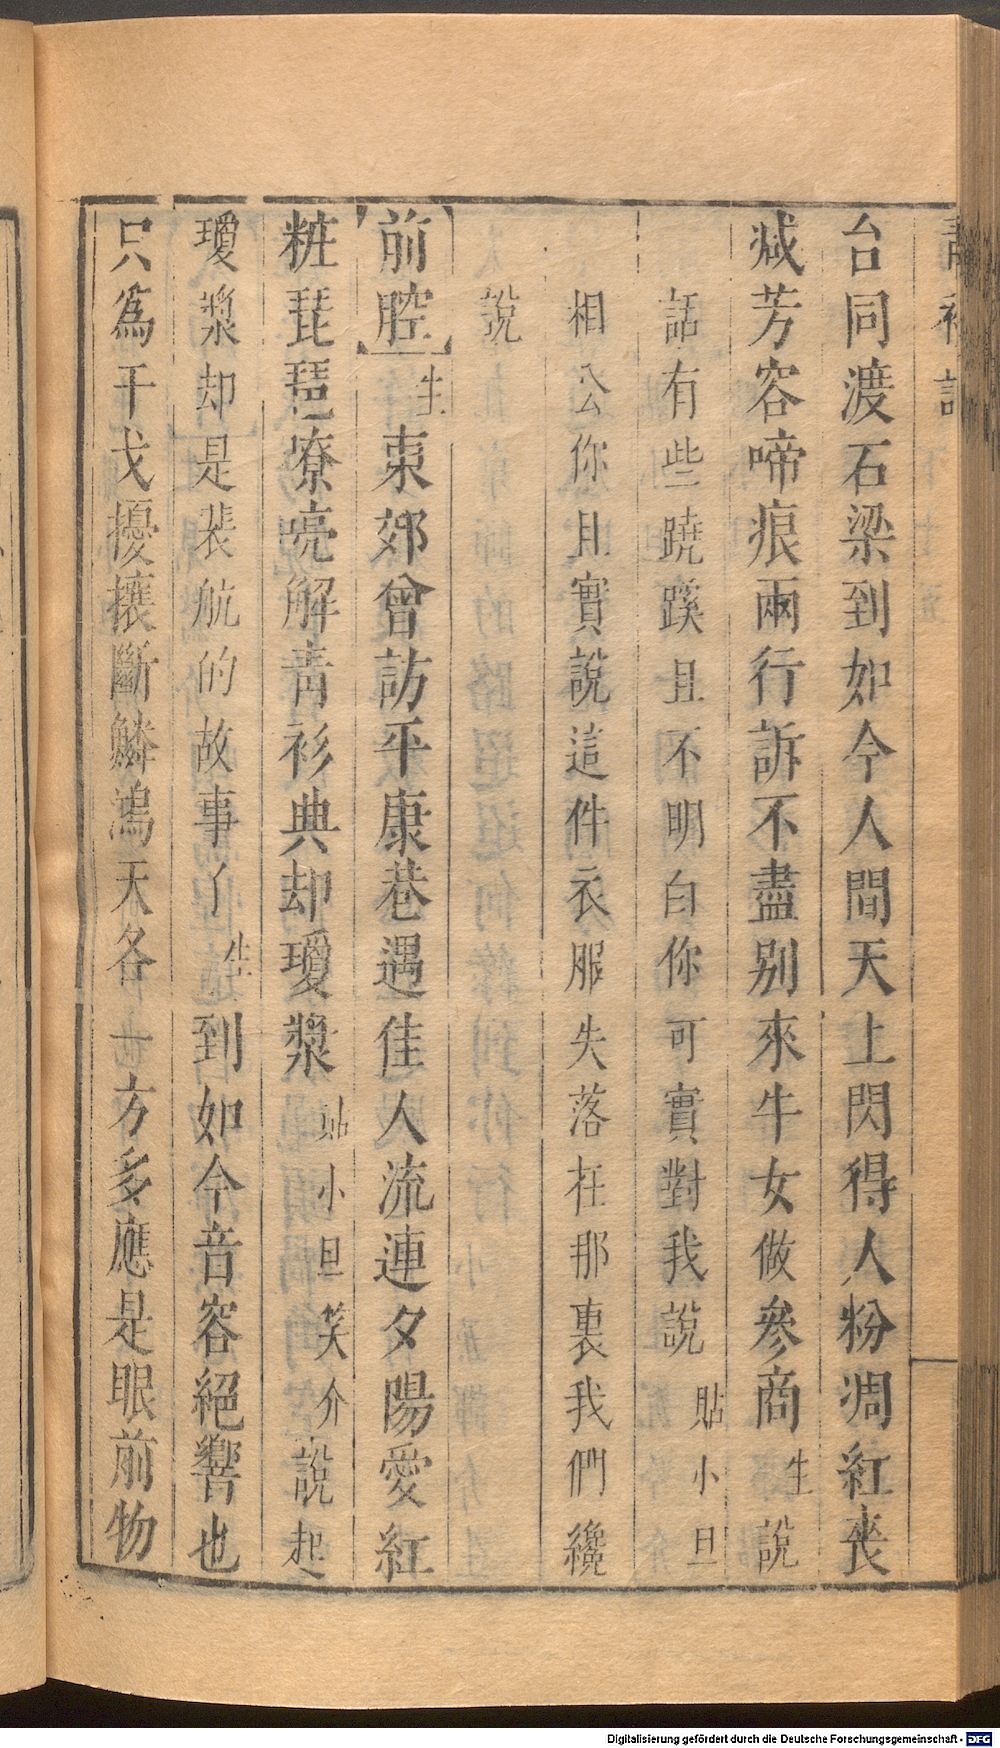 青衫記
台同渡石梁到如今人間天上閃得人粉凋紅喪
減芳容啼痕兩行訴不盡别來牛女做參商生說
話有些蹺蹊且不明白你可實對我說貼小旦
相公你且實說這件衣服失落在那裏我們纔
說
前腔生東郊曾訪平康巷遇佳人流連夕陽愛紅
粧琵琶嘹亮解靑衫典却瓊漿貼小旦笑介說起
瓊漿却是裴航的故事了生到如今音容絕響也
只爲干戈擾攘斷鱗鴻天各也方多應是眼前物
Digitalisierung gefördert durch die Deutsche Forschungsgemeinschaft - DFG